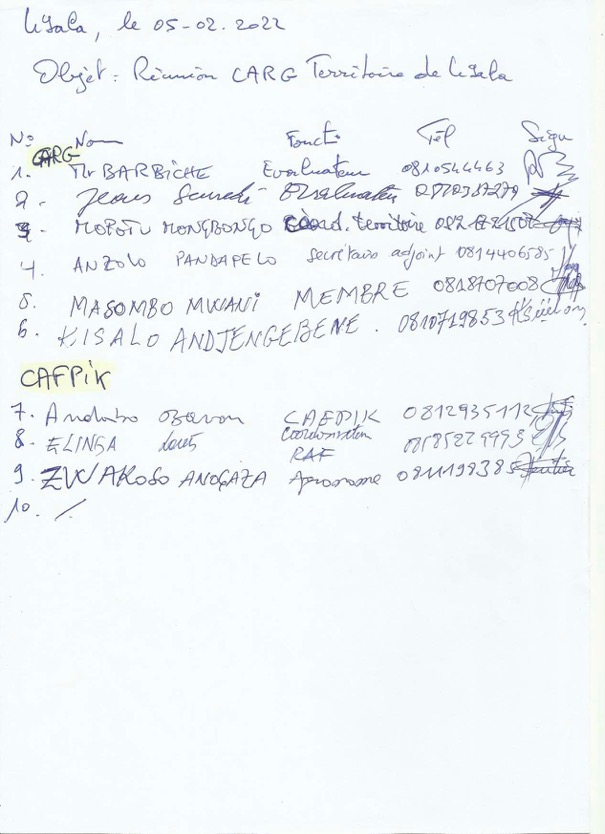 Lisala, le 05-02. 2022
Objet : Réunion CARG Territoire de Lisala
N° Nom Foncti Tél Sign
CARG
1. Mr BARBICHE Evaluateur 0810544463
2. Jean Evaluateur
3. MOPOTU MONGBONGO Coord. territoire
4. ANZOLO PANDAPELO secrétaire adjoint 0814406585
5. MASOMBO MWANI MEMBRE 0818707008
6. KISALO ANDJENGEBENE . 0810719853
CAFPIK
7. CAFPIK 0812935112
Coordination
8. ELINGA Louis RAF
9. ZWAKOSO ANOGAZA Agronome
10. /.